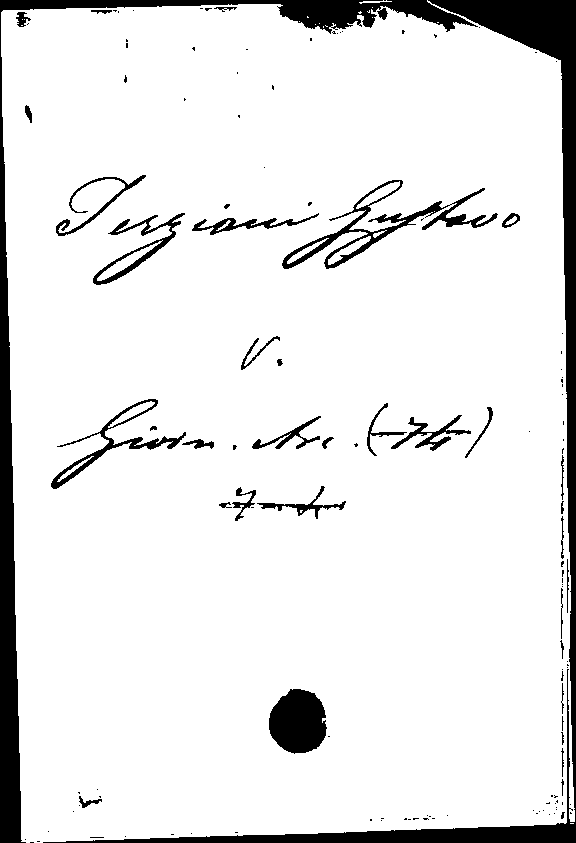 Terziani Gustavo
V.
Giorn. Arc. (74)